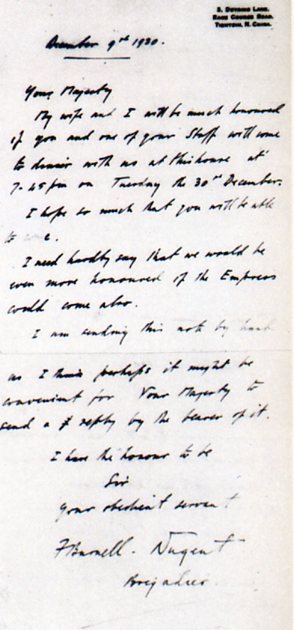 3, Duthing Lane,
Race Course Road,
Tientsin, N. China.
December 9th 1930.
Your Majesty
My wife and I will be much honoured
if you and one of your Staff will come
to dinner with us at this house at
7-45 pm on Tuesday the 30th December.
I hope so much that you will be able
to come.
I need hardly say that we would be
even more honoured if the Empress
could come also.
I am sending this note by hand
as I think perhaps it might be
convenient for Your Majesty to
send a reply by the bearer of it.
I have the honour to be
Sir
your obedient servant
F Burnell-Nugent
Brigadier.